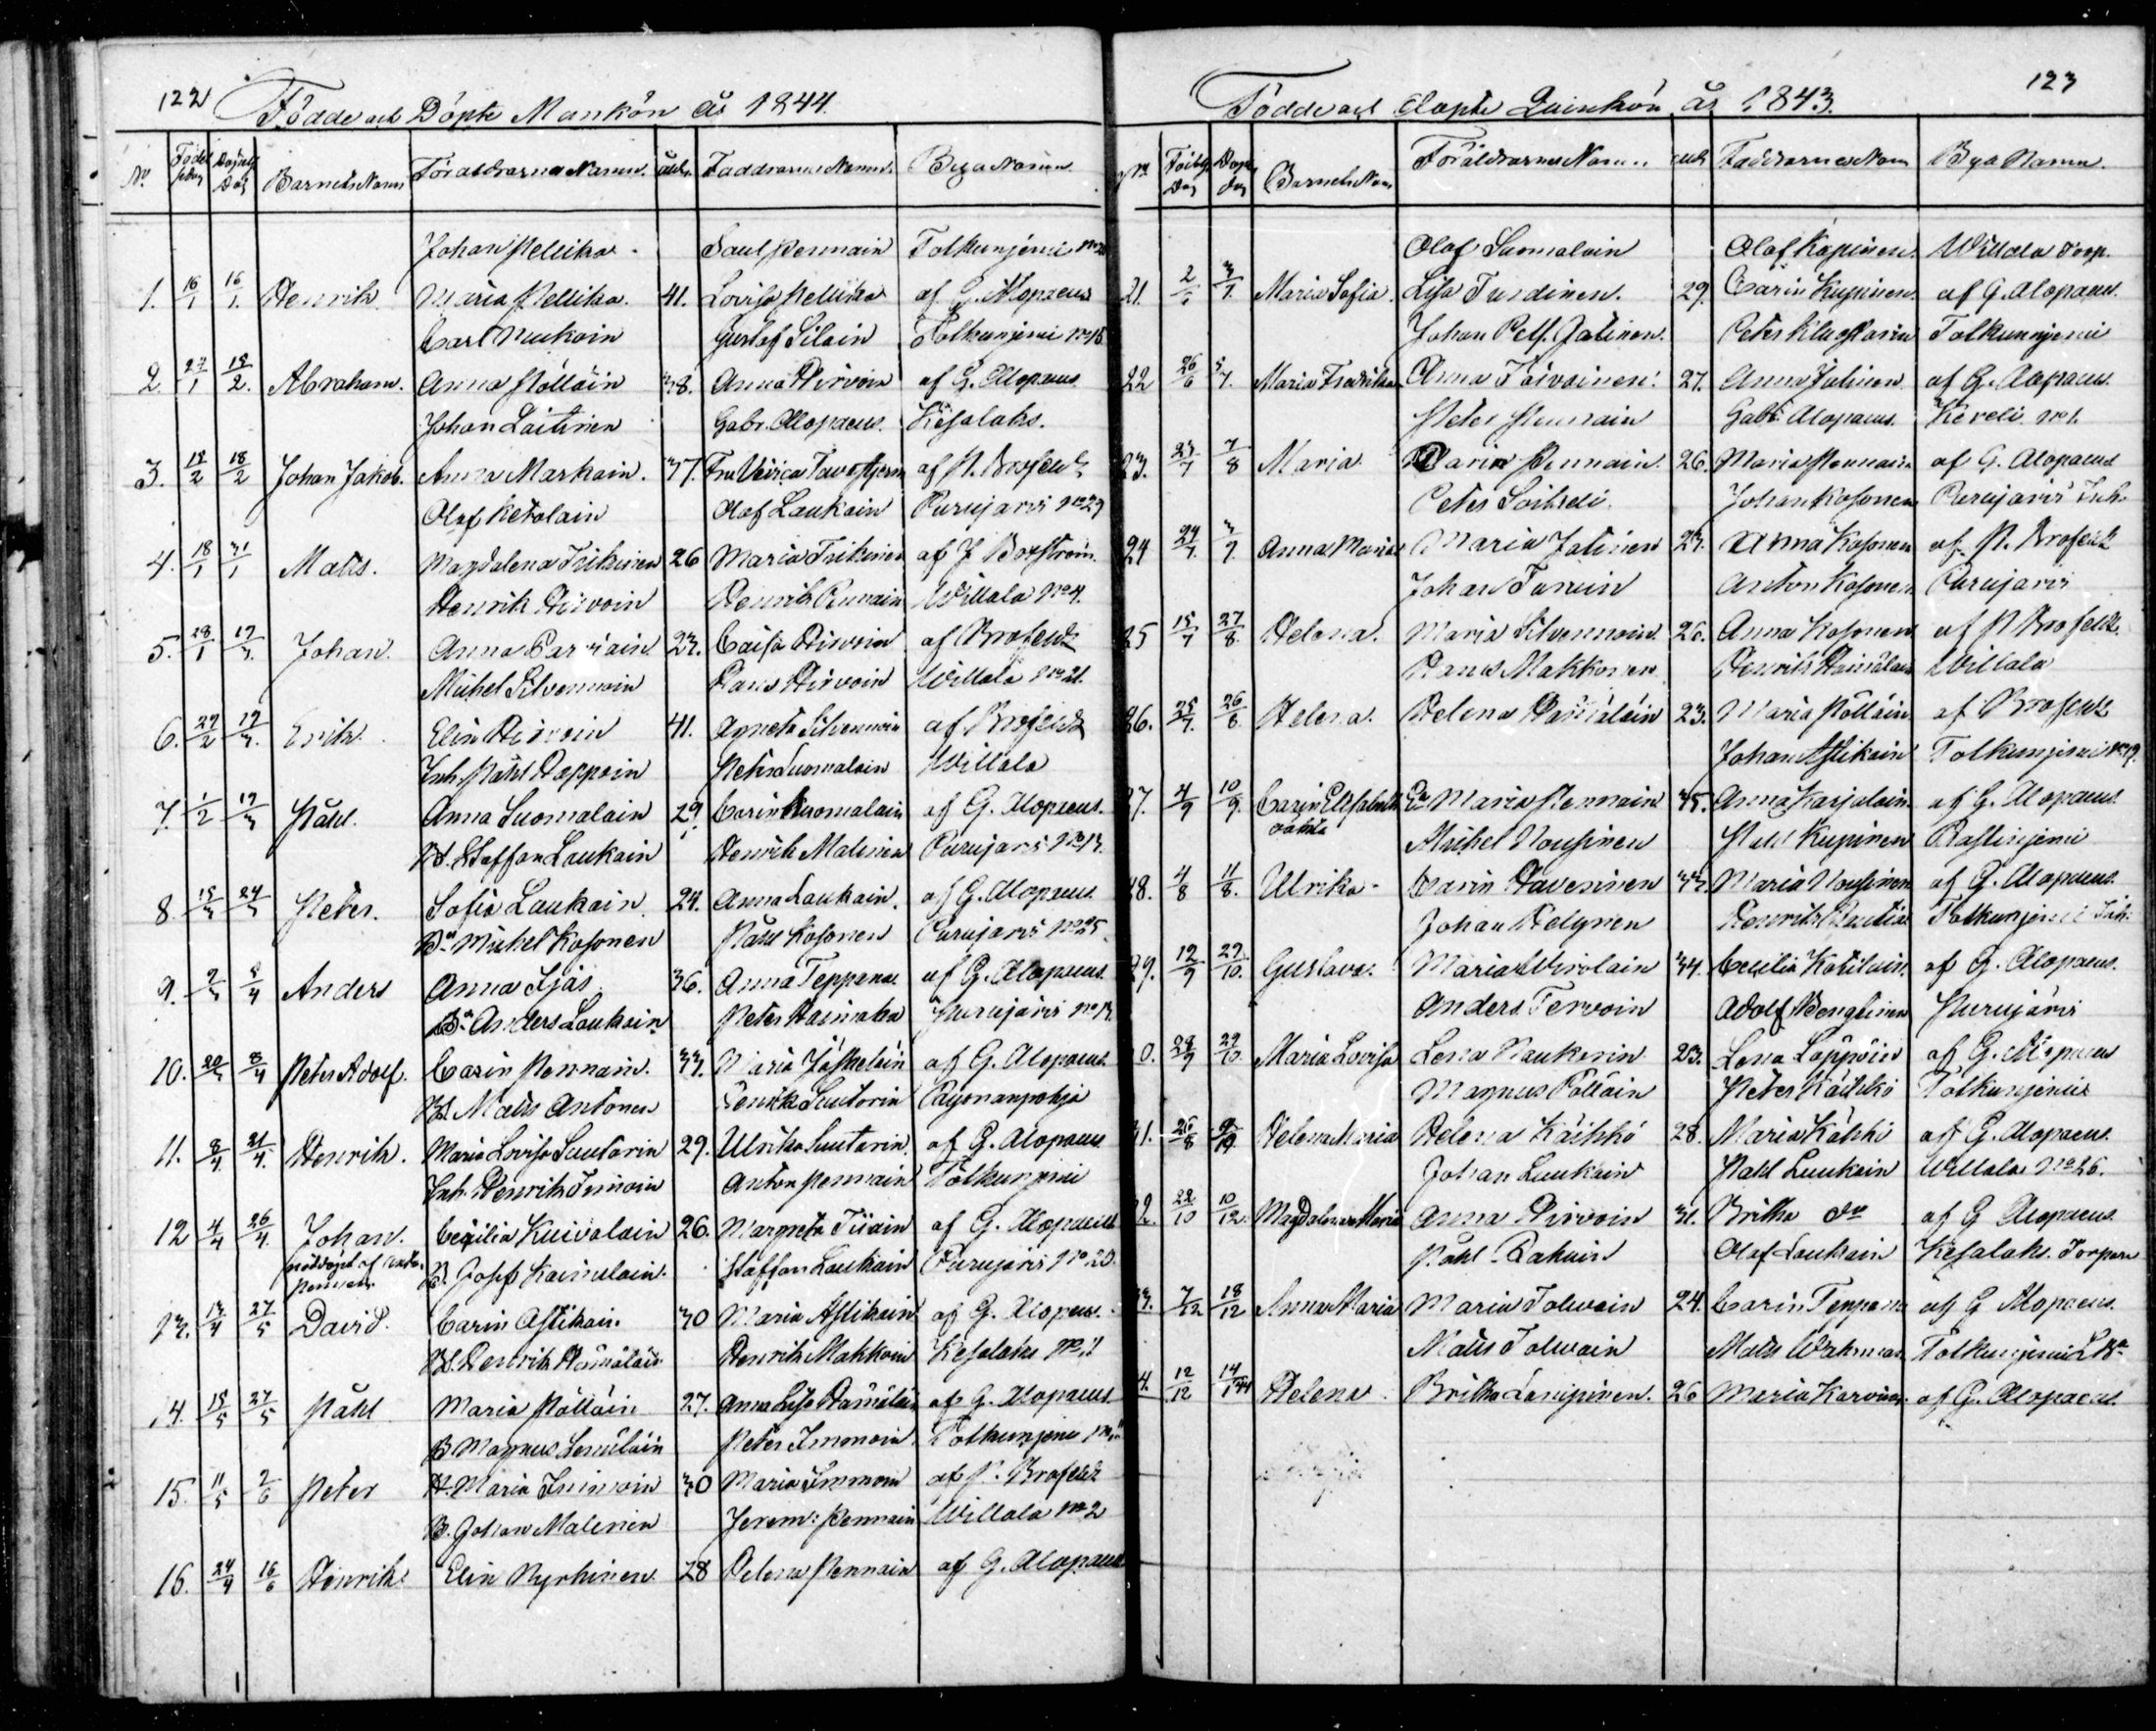 122
Födde och Döpte Mankön år 1844.
No Födelsedag Döpelse Dag Barnets Namn Föräldrarnas Namn. ålder Faddrarnes Namn. Bya Namn
Johan Pellika Paul Pennain Tolkunjemi No
1. 16/1 16/1. Henrik Maria Pellika. 41. Lovisa Pellika af G. Alopaeus
Carl Muukoin Gustaf Silain Tolkunjemi No 15
2. 27/1 18/2. Abraham. Anna Pölläin 38. Anna Hirvoin af G. Alopaeus
Johan Laitinen Gabr. Alopaeus. Kesalaks.
3. 12/2 18/2 Johan Jakob. Anna Markain. 37. Fru Virica Tavastjerna af P. Brofeldt
Olof Ketolain Olof Laukain Purujarvi No 29
4. 18/1 31/1 Matts. Magdalena Tiihinen 26 Maria Tiihinen af J Boxström.
Henrik Hirvoin Henrik Pennain Willala No 4.
5. 28/1 17/3. Johan. Anna Parviain 23. Caisa Hirvoin af Brofeldt
Michel Silvennoin Hans Hirvoin Willala No 21.
6. 29/2 17/3. Erik. Elin Hirvoin 41. Agneta Silvennoin af Brofeldt
Inh. Påhl Heppoin Peter Suomalain Willala
7. 1/2 17/3 Påhl. Anna Suomalain 29 Carin Suomalain af G. Alopaeus.
B. Staffan Laukain Henrik Malinen Purujarvi No 13.
8. 15/3 24/3 Peter. Sofia Laukain 24. Anna Laukain. af G. Alopaeus
Bn Michel Kosonen Påhl Kosonen Purujarvi No 25.
9. 2/3 8/4 Anders Anna Ijäs 36. Anna Teppana. af G. Alopaeus
Bn Anders Laukain Peter Hamaka Purujarvi No 13.
10. 20/3 8/4 Peter Adolf. Carin Pennain. 33. Maria Jäskeläin af G. Alopaeus.
B. Matts Antonen Henrik Suutarin Ryönanpohja
11. 8/4 21/4. Henrik. Maria Lovisa Suutarin 29. Ulrika Suutarin. af G. Alopaeus
Inh. Henrik Immoin Anton Pennain Tolkunjemi
12 4/4 26/4. Johan. Cecilia Kuivalain 26. Margreta Tiiain af G. Alopaeus
nöddöpt af Pennain B. Josef Kaimulain. Staffan Laukain Purujarvi No 20.
13. 13/4 27/5 David. Carin Asikain. 30 Maria Asikain af G. Alopaeus.
B. Henrik Hämäläin Henrik Makkoin Kesalaks No 2
14. 18/5 27/5 Påhl Maria Pölläin 27. Anna Lisa Hämäläin af G. Alopaeus
B Magnus Lemeläin Peter Immonin Tolkunjemi No
15. 11/5 2/6 Peter H. Maria Immoin 30 Maria Immoin af P. Brofeldt
B. Johan Malinen Jerem: Pennain Willala No 2
16. 24/4 16/6 Henrik Elin Nyrhinen 28 Helena Pennain af G. Alopaeus
123
Födde och döpte Quinkön år 1843.
No Födelse Dag Dope dag Barnets Nam Föräldrarnes Nam. ald Faddrarnes Nam Bya Namn.
Olof Suomalain Olof Kapinen. Willala Torp.
21. 2/7. Maria Sofia. Lisa Turdinen. 29. Carin Kupinen. af G. Alopaeus.
Johan Jalinen. Peter Tolkunnjemi
22 26/6 5/7. Maria Fredrika Anna Toivainen. 27. Anna Jalinen. af G. Alopaeus.
Peter Pennain Gabr. Alopaeus. Kereli No 1.
23. 23/7 7/8 Maria Carin Pennain. 26. Maria Pennain af G. Alopaeus
Peter Soihedi. Johan Kosonen Purujarvi Inh.
24 24/7. Anna Maria Maria Jatinen 23. Anna Kosonen af P. Brofeldt
Johan Turuin Anton Kosonen. Purujarvi
25 15/7 27/8. Helena. Maria Silvennoin. 26. Anna Kosonen af P Brofeldt.
Hans Makkonen Henrik Hämäläin Willala
26. 25/7. 26/8. Helena. Helena Hämäläin 23. Maria Pölläin af Brofeldt
Johan Asikain Tolkunjemi No 19.
27. 4/9 10/9. Carin Elisabeth oäkta Maria Pennain 35. Anna Karjalain. af G. Alopaeus
Michel Nousinen Påhl Kupinen Rastinjemi
28. 4/8 11/8. Ulrika. Carin Haverinen 33. Maria Nousinen af G. Alopaeus.
Johan Helynen Henrik Rautia Tolkunjemi Inh.
29. 12/9 29/10. Gustava. Maria Wirolain 34. Cecilia Kotilain. af G. Alopaeus.
Anders Tervoin Adolf Bengtinen Purujärvi
30. 28/9 29/10. Maria Lovisa Lena Naukarin 23. Lena Läppöin af G. Alopaeus
Magnus Pölläin Peter Käihkö Tolkunjemi
31. 26/8 Helena Maria Helena Käihkö 28. Maria Käihkö af G. Alopaeus.
Johan Luukain Påhl Luukain Willala No 26.
32. 22/10 10/12. Magdalena Maria Anna Hirvoin 31. Britha do af G Alopaeus.
Påhl Pakuin Olof Laukain Kesalaks. Torpare
33. 7/12 18/12 Anna Maria Maria Tolwain 24. Carin Teppana af G Alopaeus.
Matts Tolwain Matts Wahwan Tolkunjemi
34. 12/12 14/1 44 Helena. Britha Lampinen. 26 Maria Karvinen. af G. Alopaeus.